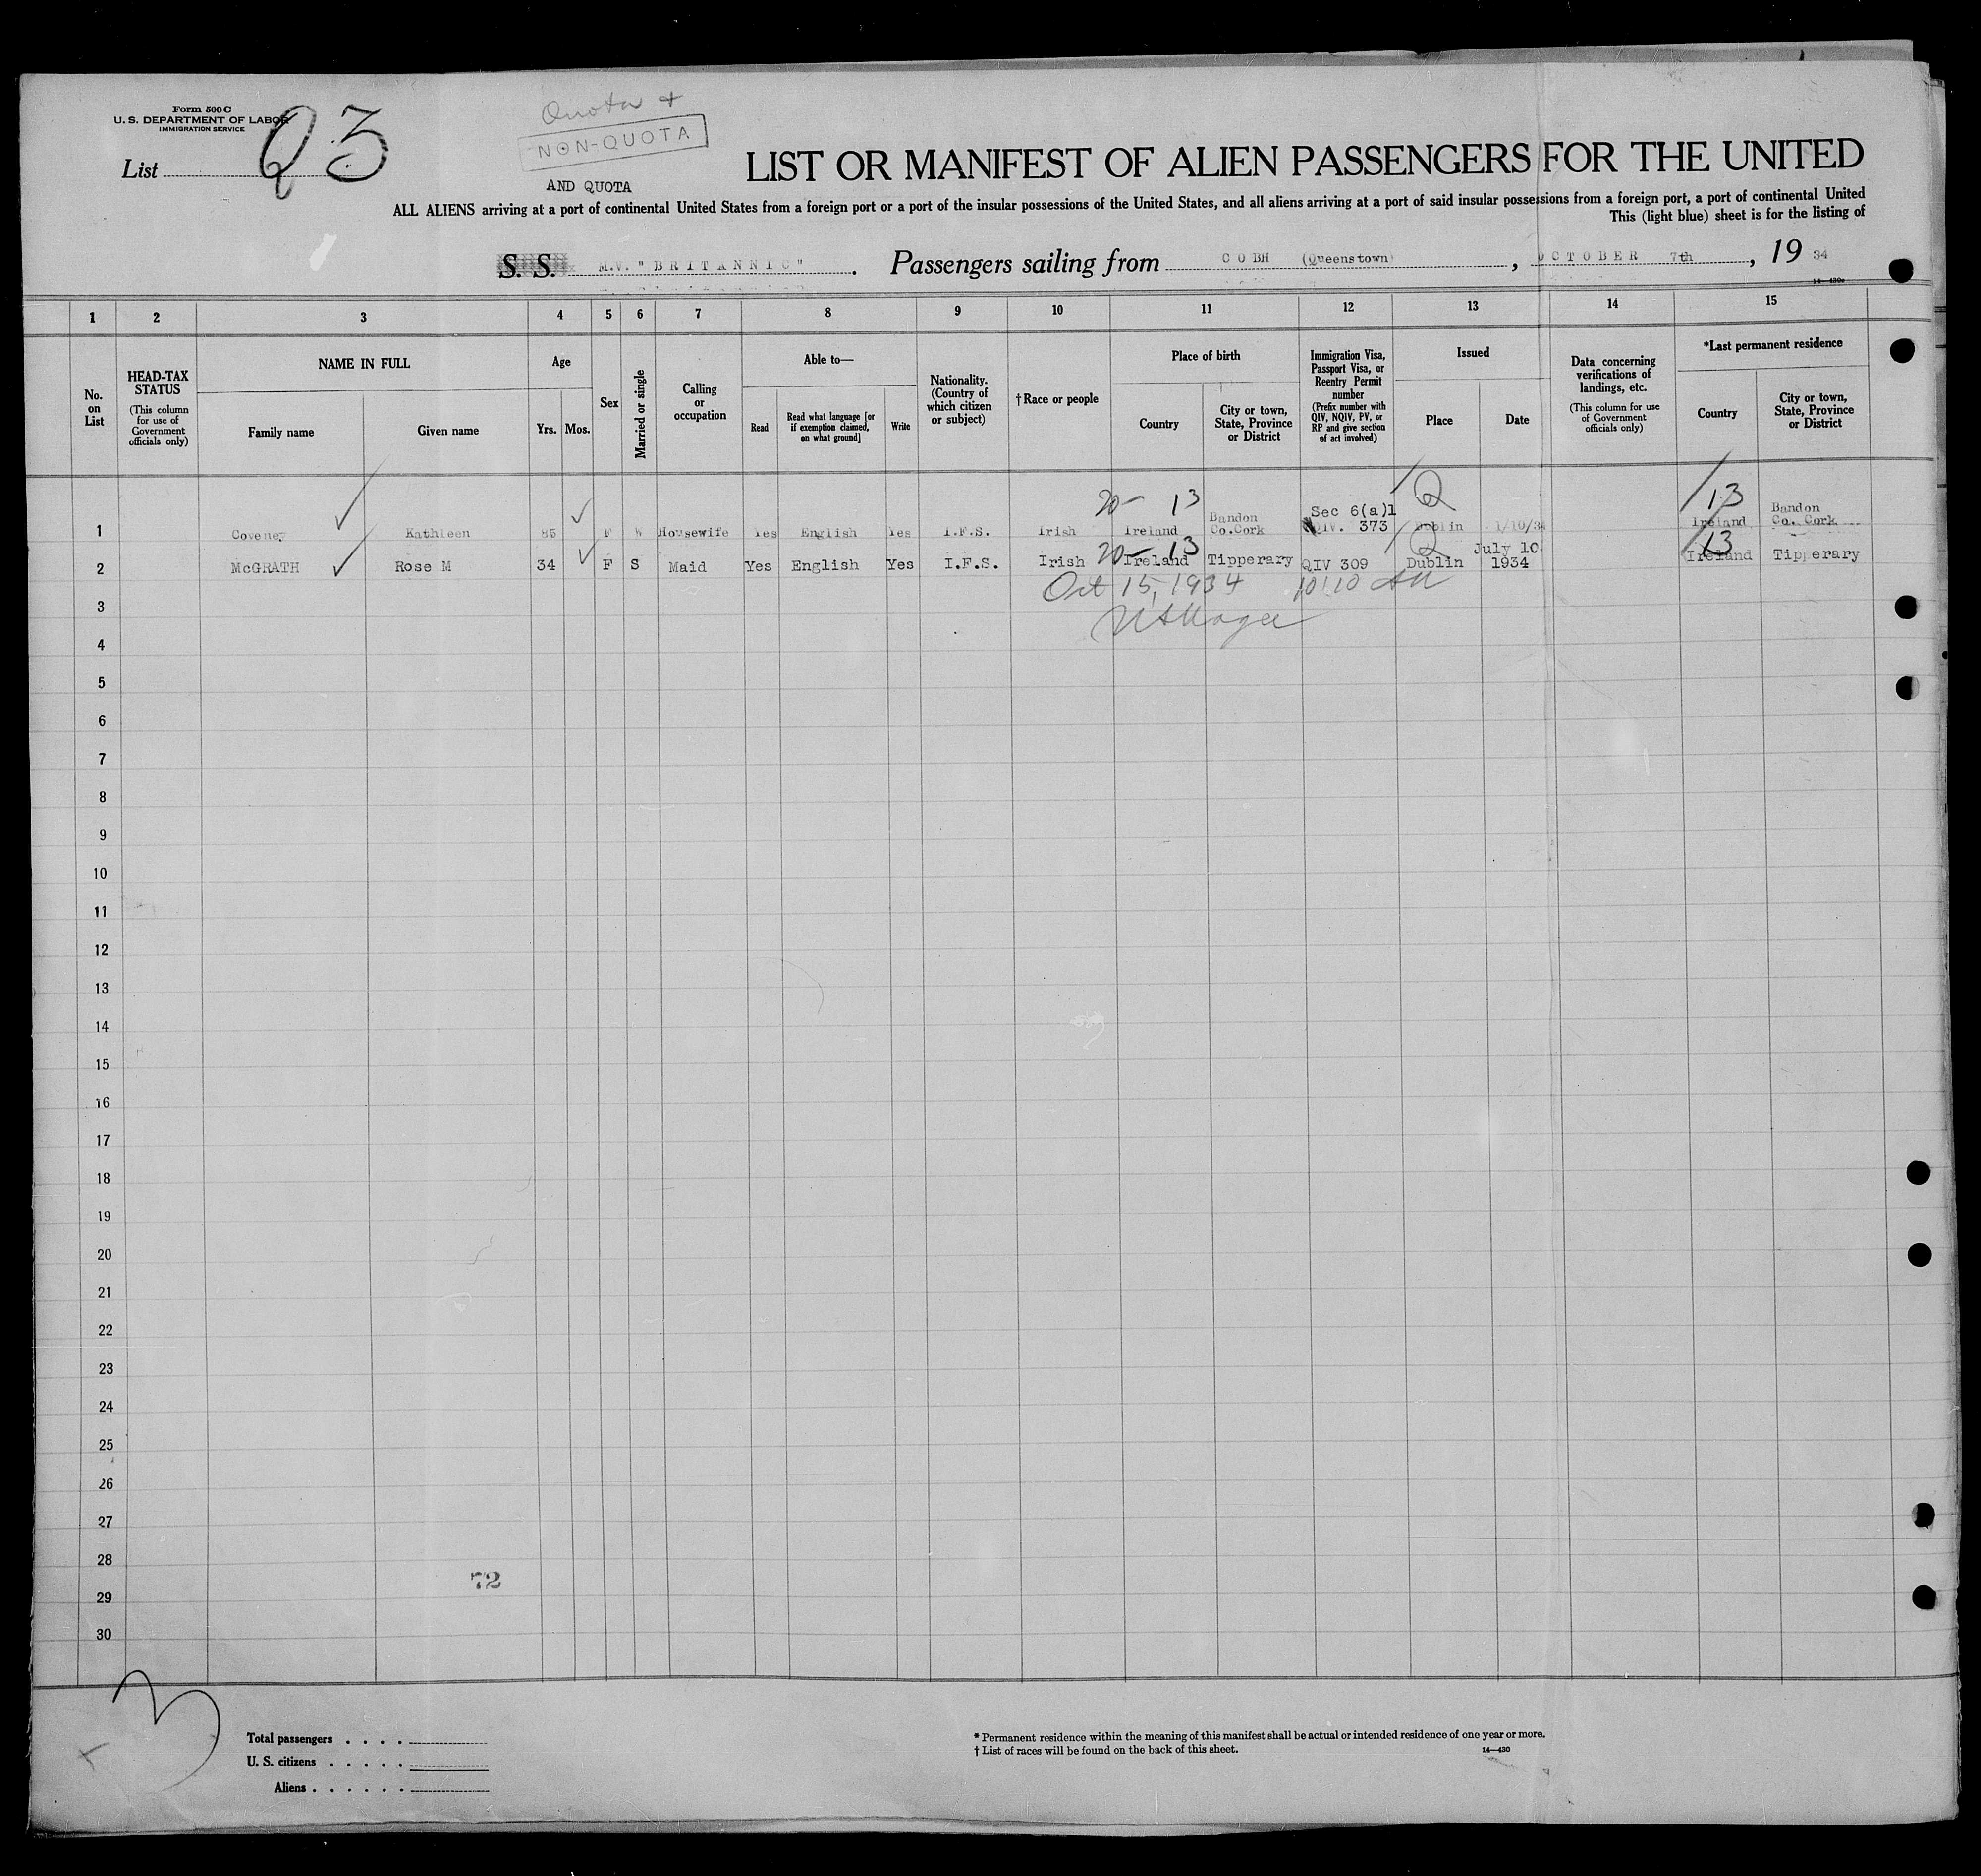 Form 500 C
U. S. DEPARTMENT OF LABOR
IMMIGRATION SERVICE
List Q3
Quota +
NON-QUOTA
AND QUOTA
LIST OR MANIFEST OF ALIEN PASSENGERS FOR THE UNITED
ALL ALIENS arriving at a port of continental United States from a foreign port or a port of the insular possessions of the United States, and all aliens arriving at a port of said insular possessions from a foreign port, a port of continental United
This (light blue) sheet is for the listing of
S. S. M.V. "BRITANNIC". Passengers sailing from COBH (Queenstown), OCTOBER 7th, 19 34
1 2 3 4 5 6 7 8 9 10 11 12 13 14 15
No. on List
HEAD-TAX STATUS
(This column for use of Government officials only)
NAME IN FULL
Family name
Given name
Age
Yrs. Mos.
Sex
Married or single
Calling or occupation
Able to—
Read
Read what language [or if exemption claimed, on what ground]
Write
Nationality. (Country of which citizen or subject)
† Race or people
Place of birth
Country
City or town, State, Province or District
Immigration Visa, Passport Visa, or Reentry Permit number
(Prefix number with QIV, NQIV, PV, or RP and give section of act involved)
Issued
Place
Date
Data concerning verifications of landings, etc.
(This column for use of Government officials only)
*Last permanent residence
Country
City or town, State, Province or District
20- 13 Sec 6(a)1 Q 13
1 Coveney Kathleen F W Housewife Yes English Yes I.F.S. Irish Ireland Bandon Co.Cork QIV. 373 Dublin Ireland Bandon Co. Cork
20- 13 Q 13
2 McGRATH Rose M 34 F S Maid Yes English Yes I.F.S. Irish Ireland Tipperary QIV 309 Dublin July 10 1934 Ireland Tipperary
Oct 15, 1934 10:10 AM
3
4
5
6
7
8
9
10
11
12
13
14
15
16
17
18
19
20
21
22
23
24
25
26
27
28
72
29
30
3
Total passengers . . . .
U. S. citizens . . . . .
Aliens . . . . . .
* Permanent residence within the meaning of this manifest shall be actual or intended residence of one year or more.
† List of races will be found on the back of this sheet.
14—430